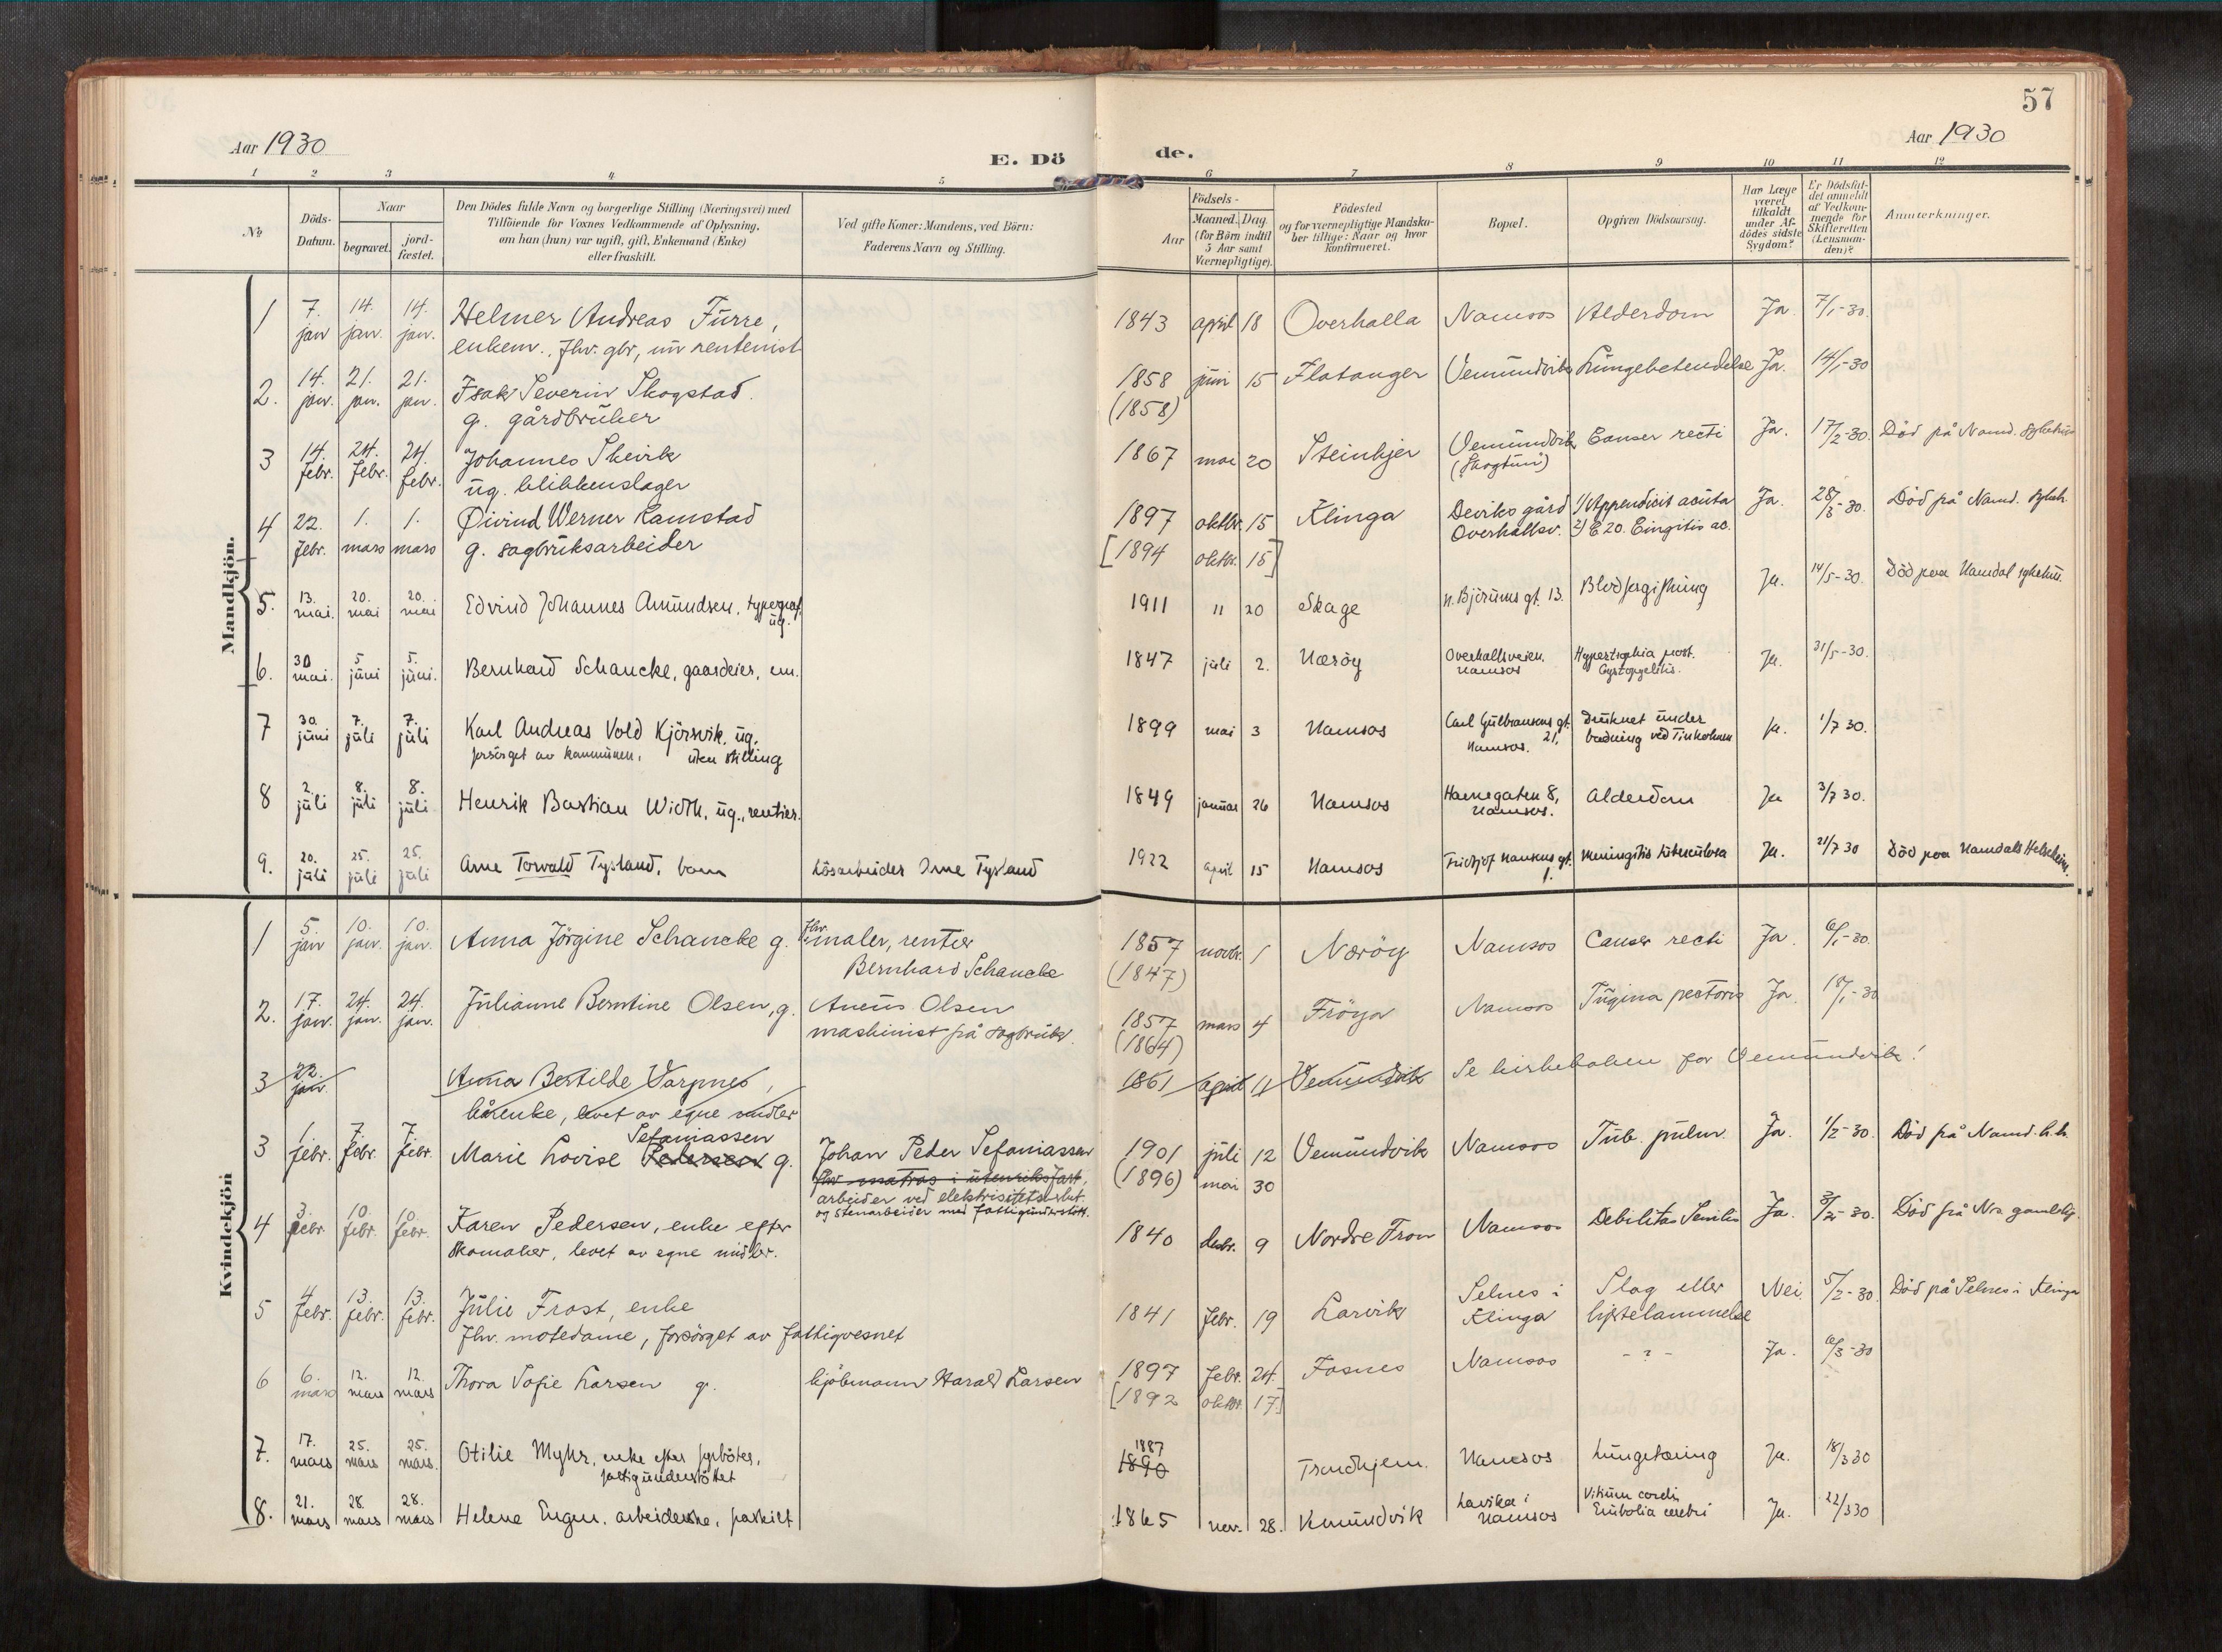 57
Aar 1930
Aar 1930
E. Dö
de.
1 2 3 4 5 6 7 8 9 10 11 12
№
Döds-
Datum.
Naar
begravet.
jord-
fæstet.
Den Dödes fulde Navn og borgerlige Stilling (Næringsvei) med
Tilföiende for Voxnes Vedkommende af Oplysning,
om han (hun) var ugift, gift, Enkemand (Enke)
eller fraskilt.
Ved gifte Koner: Mandens, ved Börn:
Faderens Navn og Stilling.
Aar
Födsels-
Maaned. Dag.
(for Börn indtil
5 Aar samt
Værnepligtige).
Födested
og for værnepligtige Mandska-
ber tillige: Naar og hvor
konfirmeret.
Bopæl.
Opgiven Dödsaarsag.
Har Læge
været
tilkaldt
under Af-
dödes sidste
Sygdom?
Er Dödsfal-
det anmeldt
af Vedkom-
mende for
Skifteretten
(Lensman-
den)?
Anmærkninger.
Mandkjön.
1 7. jan 14. jan. 14. jan. Helmer Andreas Fürre, 1843 april 18 Overhalla Namsos Alderdom Ja 7/1-30.
enkem., fhv. gbr, nu rentenist
2. 14. jan. 21. jan. 21. jan. Isak Severin Skogstad. 1858 juni 15 Flatanger Vemundvik Lungebetendelse Ja. 14/1-30
g. gårdbruker (1858)
3 14. febr. 24. febr. 24. febr. Johannes Skevik 1867 mai 20 Steinkjer Vemundvik Canser recti Ja. 17/2-30. Död på Namd. sykehus
ug. blikkenslager (Skogtun)
4 22. febr. 1. mars 1. mars Øivind Werner Ramstad 1897 oktbr. 15 Klinga Deviks gård 1) Appendicit acuta Ja. 28/3-30. Död på Namd. sykeh.
g. sagbruksarbeider [1894 oktbr. 15] Overhallsv. 2)
5. 13. mai. 20. mai 20. mai Edvind Johannes Amundsen, typograf, ug. 1911 11 20 Skage n. Bjørums gt. 13. Blodforgiftning Ja. 14/5-30. Död paa Namdal sykehus.
6. 30 mai. 5 juni 5. juni. Bernhard Schancke, gaardeier, em. 1847 juli 2. Nærøy Overhallsveien, Namsos Hypertrophia prost. Ja. 31/5-30.
7 30. juni 7. juli 7. juli Karl Andreas Vold Kjørsvik, ug. 1899 mai 3 Namsos Carl Gulbransens gt. 21, Namsos. Druknet under Ja. 1/7 30.
forsørget av kommunen, uten stilling badning ved Tinkerholmen
8 2. juli 8. juli 8. juli Henrik Bastian Width, ug., rentier. 1849 januar 26 Namsos Havnegaten 8, Namsos. Alderdom Ja 3/7 30.
9. 20. juli 25. juli 25. juli Arne Torvald Tysland, barn Løsarbeider Arne Tysland 1922 april 15 Namsos Fridtjof Nansens gt. 1. Meningitis tuberculosa Ja. 21/7 30 Död paa Namdals Helseheim.
Kvindekjön
1 5. jan 10. jan. 10. jan. Anna Jörgine Schancke g. fhv. maler, rentier 1857 novbr. 1 Nærøy Namsos Canser recti Ja. 6/1-30.
Bernhard Schancke (1847)
2. 17. jan. 24. jan. 24. jan. Julianne Berntine Olsen, g. Aneus Olsen 1857 mars 4 Frøya Namsos Angina pectoris Ja. 18/1-30
maskinist på sagbruk. (1864)
3 22. jan. Anna Bertilde Varpnes, 1861 april 11 Vemundvik Se kirkeboken for Vemundvik!
kårenke, levet av egne midler
3 1 febr. 7 febr. 7 febr. Marie Lovise Pedersen Sefaniassen g. Johan Peder Sefaniassen 1901 juli 12 Vemundvik Namsos Tub. pulm. Ja. 1/2-30. Död på Namd. h.h.
fhv. matros i utenriksfart, (1896) mai 30
arbeider ved elektrisitetsverket.
og stenarbeider med fattigunderstött.
4 3. febr. 10. febr. 10. febr. Karen Pedersen, enke efter 1840 desbr. 9 Nordre Fron Namsos Debilitas Senilis Ja. 3/2-30. Död på Ns. gamlehj.
skomaker, levet av egne midler.
5 4 febr. 13. febr. 13. febr. Julie Frost, enke 1841 febr. 19 Larvik Selnes i Klinga Slag eller Nei 5/2-30. Död på Selnes i Klinga
fhv. motedame, forsörget av fattigvesnet
6 6. mars 12. mars 12. mars Thora Sofie Larsen g. kjöbmann Harald Larsen 1897 febr. 24. Fosnes Namsos - ? - Ja. 6/3-30
[1892 oktbr. 17]
7. 17. mars 25. mars 25. mars. Otilie Myhr, enke efter fyrböter, 1887 1890 Trondhjem. Namsos Lungetæring Ja. 18/3 30
fattigunderstöttet
8. 21. mars 28. mars 28. mars Helene Engen, arbeiderske, fraskilt 1865 nov. 28. Vemundvik Lavika i Namsos Vitium cordis Embolia cerebri Ja. 22/3 30